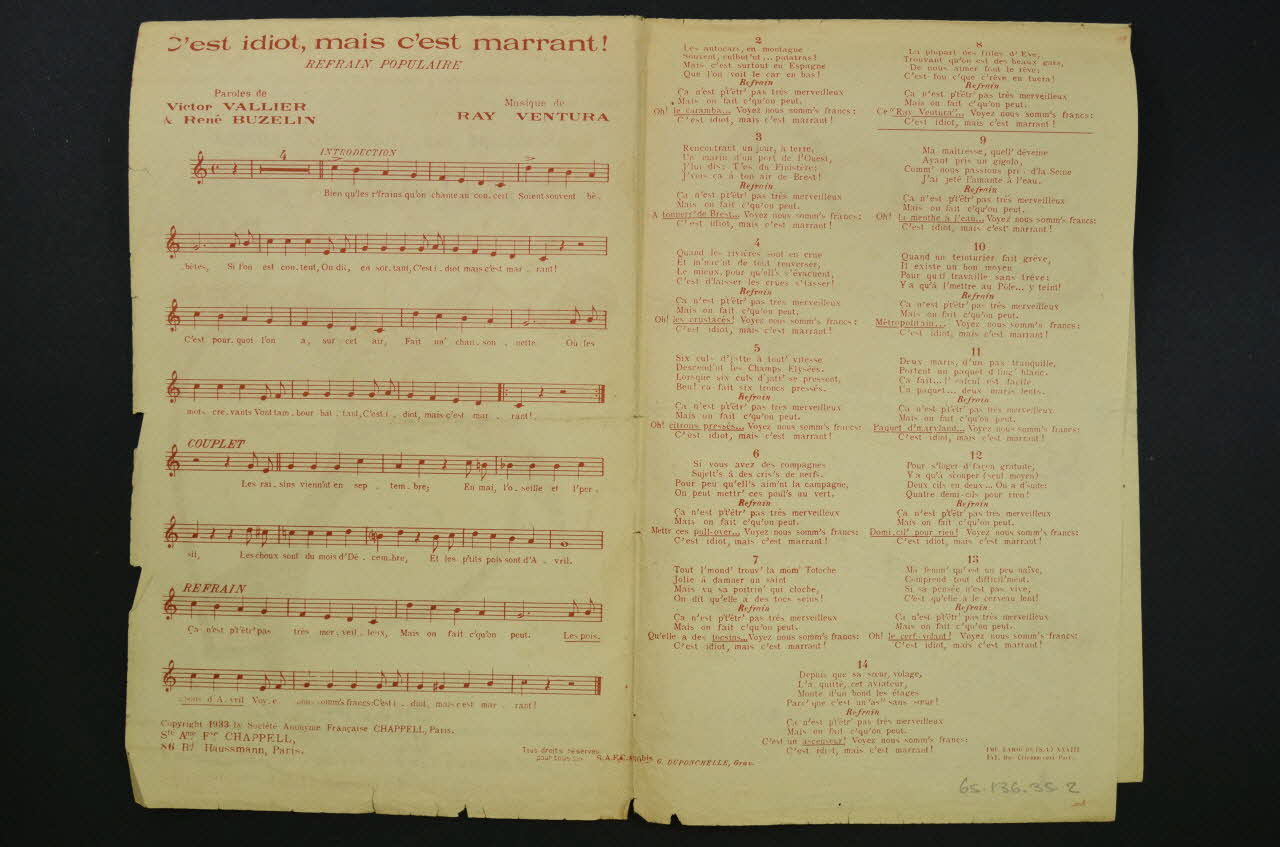 C'est idiot, mais c'est marrant!
REFRAIN POPULAIRE
Paroles de
Victor VALLIER
& René BUZELIN
Musique de
RAY VENTURA
4
INTRODUCTION
Bien qu'les r'frains qu'on chante au con.cert Soient souvent bê.
.bêtes, Si l'on est con.tent, On dit, en sor.tant, C'est i.diot mais c'est mar.rant!
C'est pour.quoi l'on a, sur cet air, Fait un' chan.son.nette Où les
mots cre.vants Vont tam.bour bat.tant, C'est i.diot, mais c'est mar.rant!
COUPLET
Les rai.sins vienn'nt en sep.tem.bre; En mai, l'o.seille et l'per.
sil, Les choux sont du mois d'Dé.cembre, Et les p'tits pois sont d'A.vril.
REFRAIN
Ça n'est p't'êtr' pas très mer.veil.leux, Mais on fait c'qu'on peut. Les pois.
.sons d'A.vril Voy.e. nous somm's francs: C'est i.diot, mais c'est mar.rant!
Copyright 1933 by Société Anonyme Française CHAPPELL, Paris.
Sté Ame Fse CHAPPELL,
86 Bd Haussmann, Paris.
Tous droits réservés
pour tous
2
Les autocars, en montagne
Souvent, culbut'nt... patatras!
Mais c'est surtout en Espagne
Que l'on voit le car en bas!
Refrain
Ça n'est p't'êtr' pas très merveilleux
Mais on fait c'qu'on peut.
Oh! le caramba... Voyez nous somm's francs:
C'est idiot, mais c'est marrant!
3
Rencontrant un jour, à terre,
Un marin d'un port de l'Ouest,
J'lui dis: T'es du Finistère:
J'vois ça à ton air de Brest!
Refrain
Ça n'est p't'êtr' pas très merveilleux
Mais on fait c'qu'on peut.
A tonnerr' de Brest... Voyez nous somm's francs:
C'est idiot, mais c'est marrant!
4
Quand les rivières sont en crue
Et m'nac'nt de tout renverser,
Le mieux, pour qu'ell's s'évacuent,
C'est d'laisser les crues s'tasser!
Refrain
Ça n'est p't'êtr' pas très merveilleux
Mais on fait c'qu'on peut.
Oh! les crustacés! Voyez nous somm's francs:
C'est idiot, mais c'est marrant!
5
Six culs d'jatte à tout' vitesse
Descend'nt les Champs Elysées.
Lorsque six culs d'jatt' se pressent,
Ben! ça fait six troncs pressés.
Refrain
Ça n'est p't'êtr' pas très merveilleux
Mais on fait c'qu'on peut.
Oh! citrons pressés... Voyez nous somm's francs:
C'est idiot, mais c'est marrant!
6
Si vous avez des compagnes
Sujett's à des cris's de nerfs.
Pour peu qu'ell's aim'nt la campagne,
On peut mettr' ces poul's au vert.
Refrain
Ça n'est p't'êtr' pas très merveilleux
Mais on fait c'qu'on peut.
Mettr' ces pull-over... Voyez nous somm's francs:
C'est idiot, mais c'est marrant!
7
Tout l'mond' trouv' la mom' Totoche
Jolie à damner un saint
Mais vu sa poitrin' qui cloche,
On dit qu'elle a des tocs seins!
Refrain
Ça n'est p't'êtr' pas très merveilleux
Mais on fait c'qu'on peut.
Qu'elle a des tocsins... Voyez nous somm's francs:
C'est idiot, mais c'est marrant!
8
La plupart des filles d'Eve,
Trouvant qu'on est des beaux gars,
De nous aimer font le rêve:
C'est fou c'que c'rêve en tuera!
Refrain
Ça n'est p't'êtr' pas très merveilleux
Mais on fait c'qu'on peut.
Ce "Ray Ventura"... Voyez nous somm's francs:
C'est idiot, mais c'est marrant!
9
Ma maîtresse, quell' déveine
Ayant pris un gigolo,
Comm' nous passions près d'la Seine
J'ai jeté l'amante à l'eau.
Refrain
Ça n'est p't'êtr' pas très merveilleux
Mais on fait c'qu'on peut.
Oh! la menthe à l'eau... Voyez nous somm's francs:
C'est idiot, mais c'est marrant!
10
Quand un teinturier fait grève,
Il existe un bon moyen
Pour qu'il travaille sans trêve:
Y a qu'à l'mettre au Pôle... y teint!
Refrain
Ça n'est p't'êtr' pas très merveilleux
Mais on fait c'qu'on peut.
Métropolitain... Voyez nous somm's francs:
C'est idiot, mais c'est marrant!
11
Deux maris, d'un pas tranquille,
Portent un paquet d'ling' blanc.
Ça fait...! l'calcul est facile
Un paquet... deux maris lents.
Refrain
Ça n'est p't'êtr' pas très merveilleux
Mais on fait c'qu'on peut.
Paquet d'maryland... Voyez nous somm's francs:
C'est idiot, mais c'est marrant!
12
Pour s'loger d'façon gratuite,
Y a qu'à s'couper (seul moyen)
Deux cils en deux... On a d'suite:
Quatre demi-cils pour rien!
Refrain
Ça n'est p't'êtr' pas très merveilleux
Mais on fait c'qu'on peut.
Domi.cil' pour rien! Voyez nous somm's francs:
C'est idiot, mais c'est marrant!
13
Ma femm' qu'est un peu naïve,
Comprend tout difficil'ment.
Si sa pensée n'est pas vive,
C'est qu'elle a le cerveau lent!
Refrain
Ça n'est p't'êtr' pas très merveilleux
Mais on fait c'qu'on peut.
Oh! le cerf-volant! Voyez nous somm's francs:
C'est idiot, mais c'est marrant!
14
Depuis que sa sœur, volage,
L'a quitté, cet aviateur,
Monte d'un bond les étages
Parc' que c'est un "as" sans sœur!
Refrain
Ça n'est p't'êtr' pas très merveilleux
Mais on fait c'qu'on peut.
C'est un ascenseur! Voyez nous somm's francs:
C'est idiot, mais c'est marrant!
G. DUPONCHELLE, Grav.
65.136.35.2